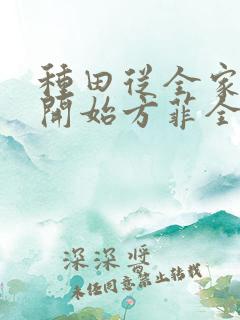 種田從全家
開始方菲全
深深醬
未經同意禁止轉載